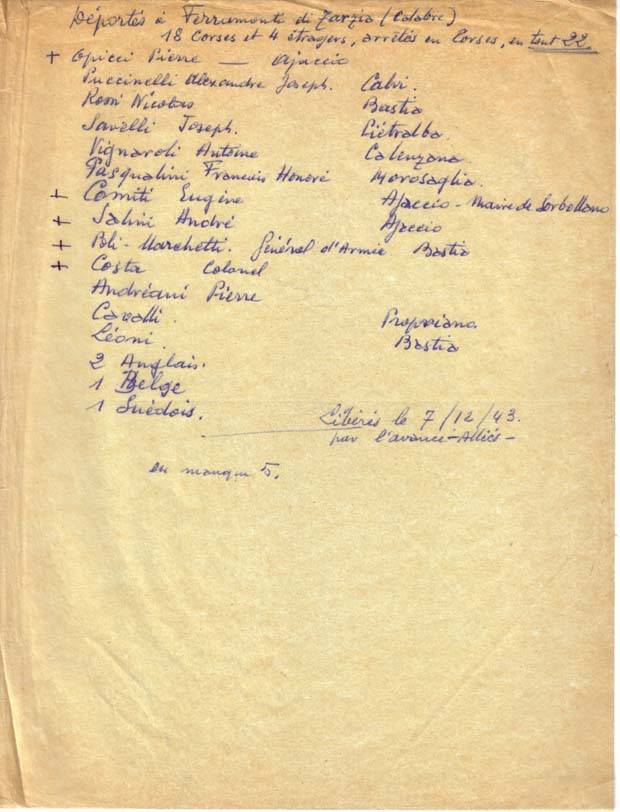 Déportés à Ferramonti di Tarzia (Calabre)
18 Corses et 4 étragers, arrêtés en Corses, en tout 22
+ Opicci Pierre — Ajaccio
Puccinelli Alexandre Joseph. Calvi.
Rossi Nicolas Bastia
Savelli Joseph. Piétralba.
Vignaroli Antoine Calenzana.
Pasqualini Francois Honoré Morosaglia.
+ Comiti Eugène Ajaccio - Maire de Sorbollano
+ Salini André Ajaccio
+ Poli-Marchetti. Général d'Armée Bastia
+ Costa Colonel
Andréani Pierre
Cavalli. Propriano.
Léoni. Bastia
2 Anglais.
1 Belge
1 Suédois.
Libérés le 7/12/43.
par l'avance-Alliés-
en manque 5.